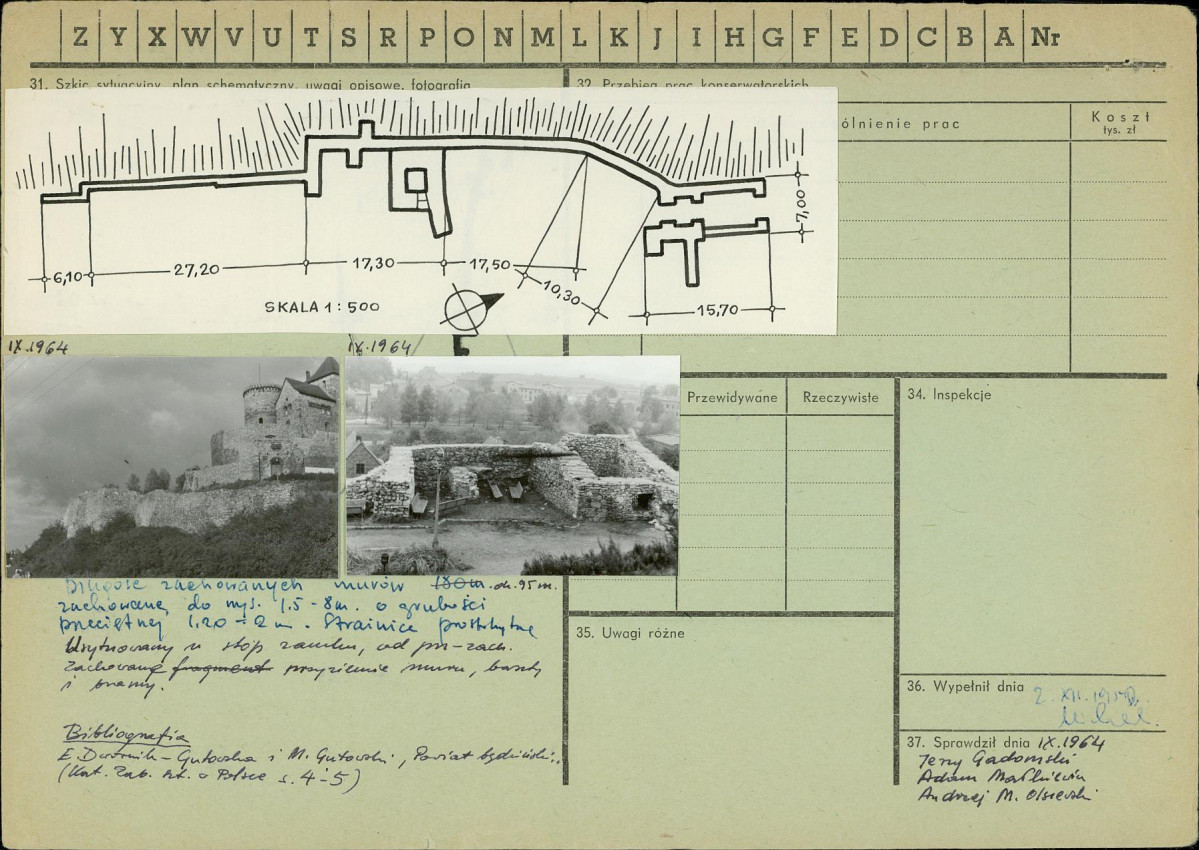 Z Y X W V U T S R P O N M L K J I H G F E D C B A Nr
31. Szkic sytuacyjny, plan schematyczny, uwagi opisowe, fotografia
32. Przebieg prac konserwatorskich
ólnienie prac
Koszt
tys. zł
6,10
27,20
17,30
17,50
10,30
15,70
7,00
SKALA 1:500
IX.1964
IX.1964
Przewidywane
Rzeczywiste
34. Inspekcje
Długość zachowanych murów 180m. ok. 95 m.
zachowane do wys. 1.5-8m. o grubości
przeciętnej 1.20-2m. Strzelnice prostokątne
Usytuowany u stóp zamku, od pn-zach.
Zachowane fragment przyziemie muru, baszty
i bramy.
Bibliografia
E. Dwornik-Gutowska i M. Gutowski, Powiat będziński,
(Kat. Zab. Szt. w Polsce s. 4-5)
35. Uwagi różne
36. Wypełnił dnia
2. XII.
37. Sprawdził dnia IX.1964
Jerzy Gadomski
Adam Małkiewicz
Andrzej M. Olszewski